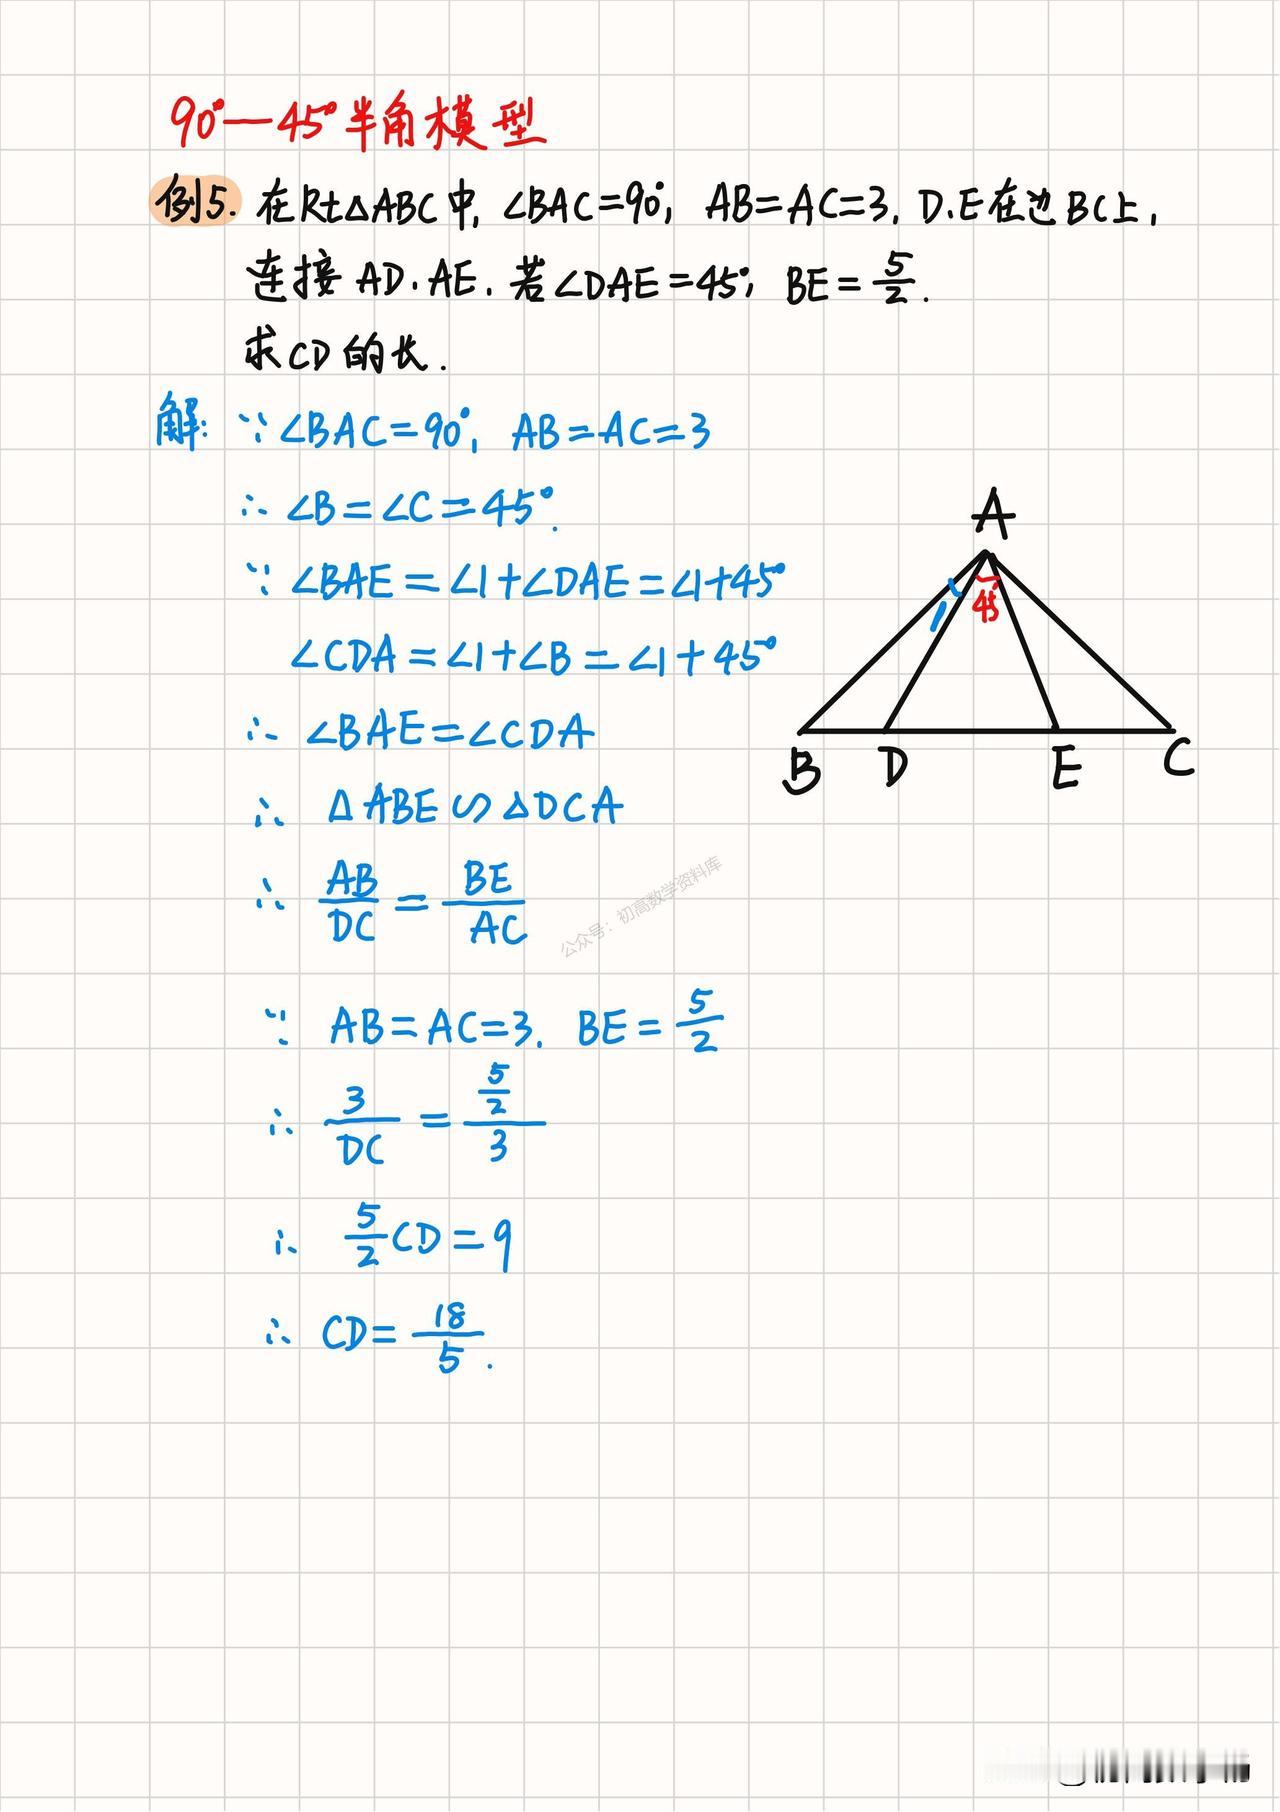 90°—45°半角模型
例5. 在Rt△ABC中, ∠BAC=90°, AB=AC=3, D.E在边BC上,
连接 AD.AE. 若∠DAE=45°, BE=5/2.
求CD的长.
解: ∵ ∠BAC=90°, AB=AC=3
∴ ∠B=∠C=45°.
∵ ∠BAE=∠1+∠DAE=∠1+45°
∠CDA=∠1+∠B=∠1+45°
∴ ∠BAE=∠CDA
∴ △ABE∽△DCA
∴ AB/DC = BE/AC
∵ AB=AC=3. BE=5/2
∴ 3/DC = (5/2)/3
∴ 5/2 CD=9
∴ CD=18/5.
A
1
45°
B D E C
公众号：初高数学资料库